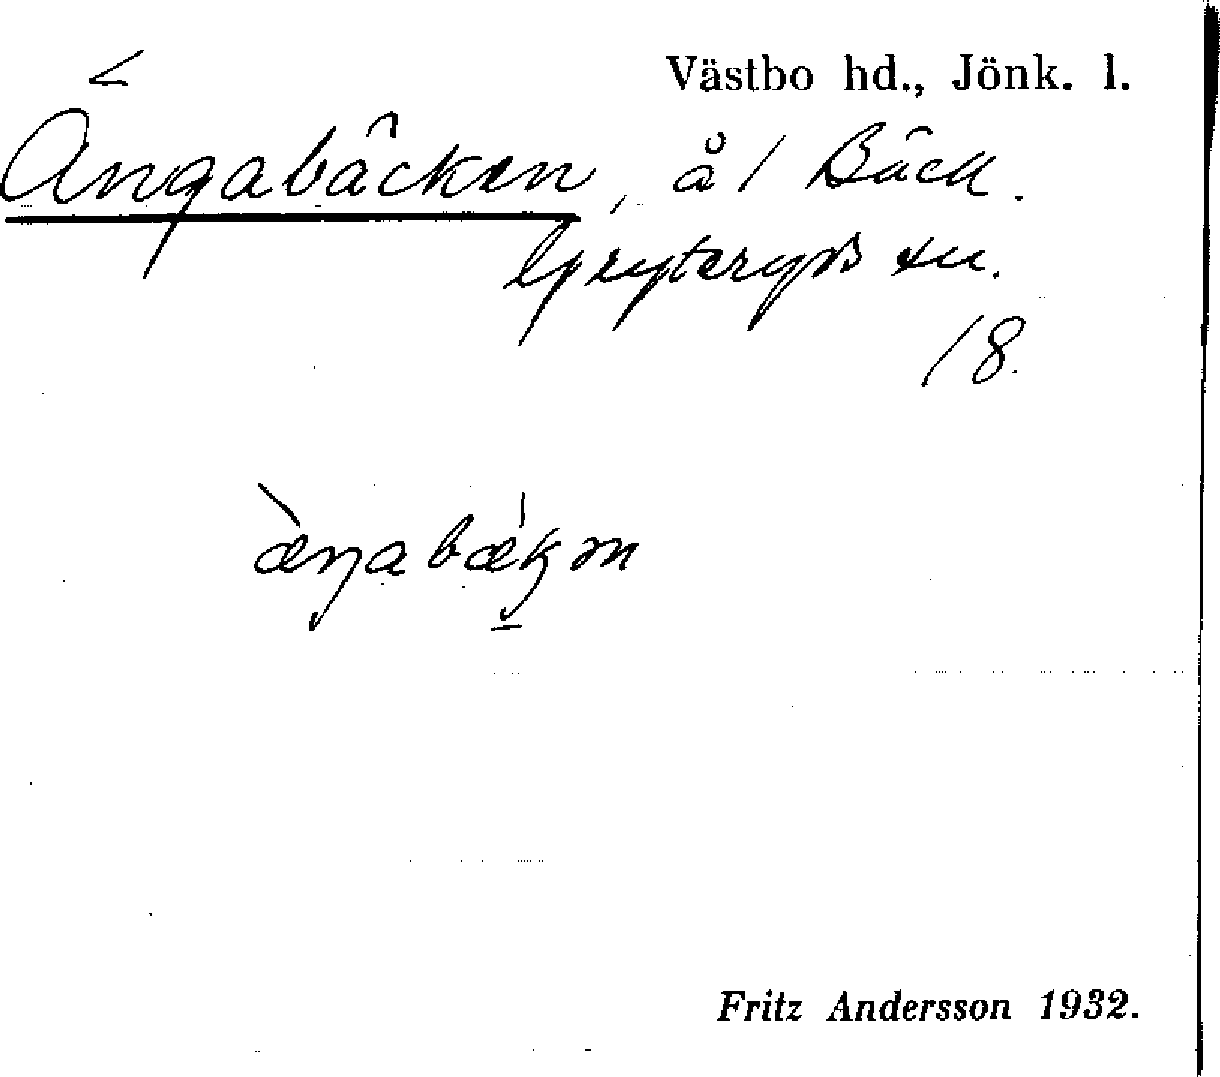 Västbo hd., Jönk. l.
Ängabäcken, å / Bäck.
Gryteryds sn.
18.
æŋabækən
Fritz Andersson 1932.